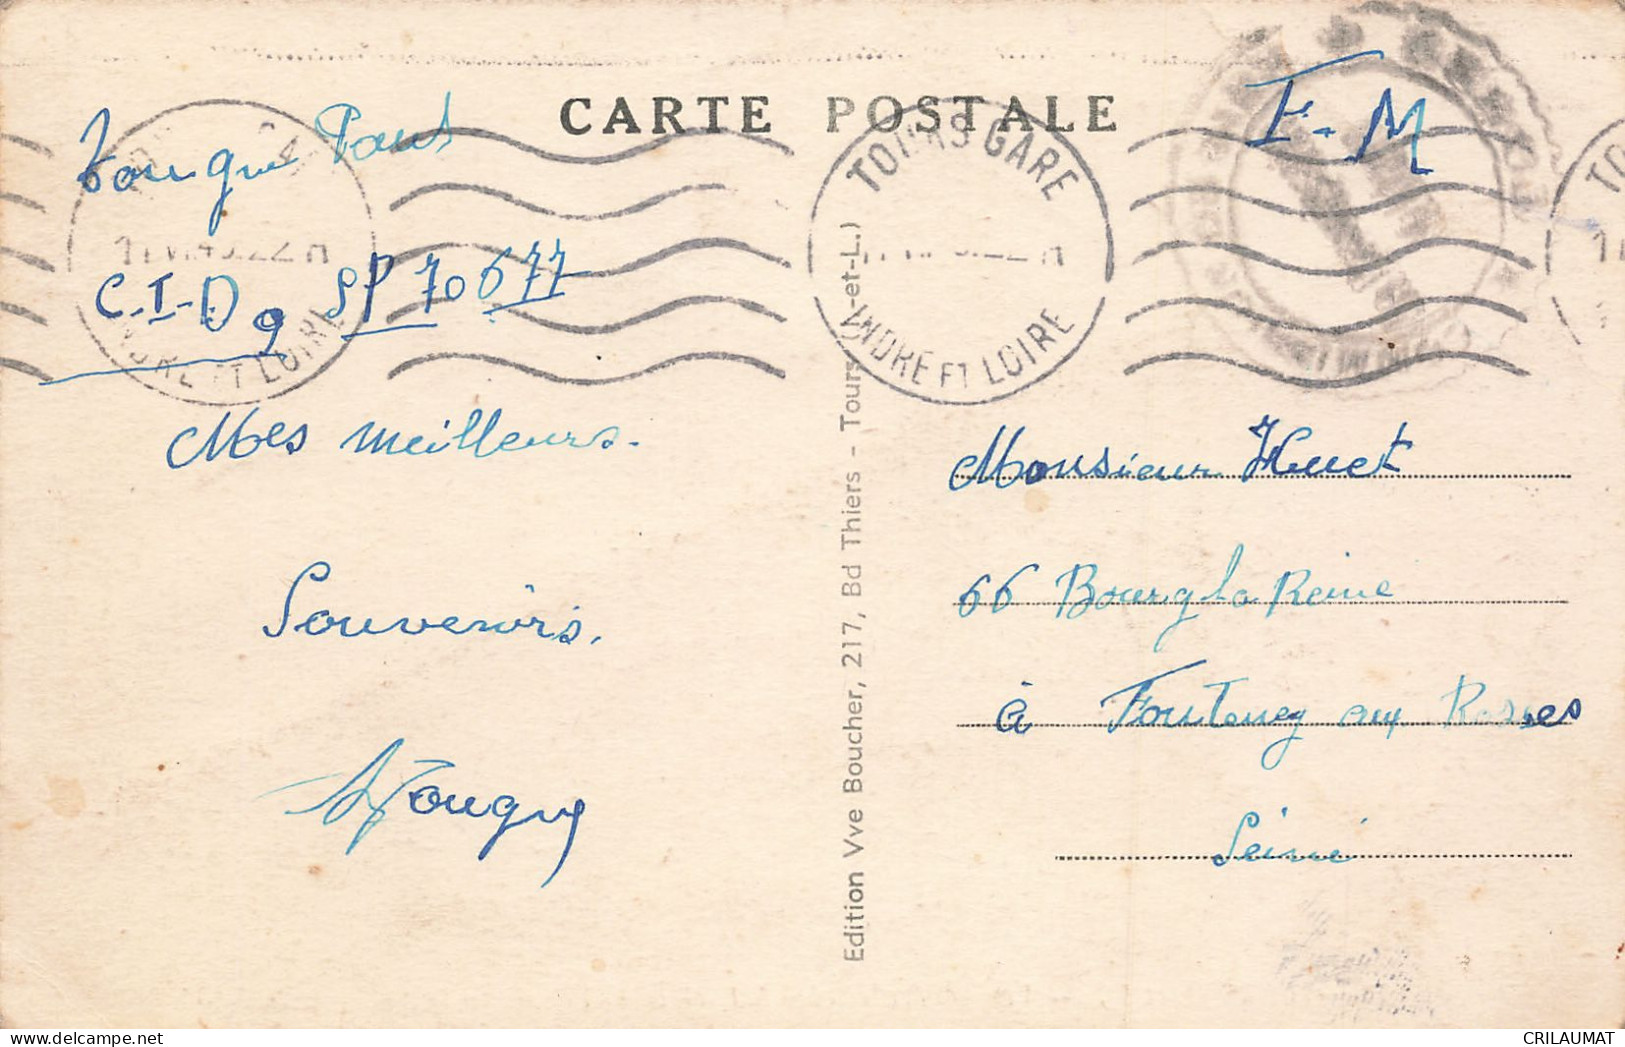 CARTE POSTALE
F-M
Paul
C.I-D 9 SP 70677
TOURS GARE
INDRE ET LOIRE
Mes meilleurs.
Souvenirs.
Monsieur Huet
66 Bourg la Reine
à Fontenay aux Roses
Seine
Edition Vve Boucher, 217, Bd Thiers - Tours (I.-et-L.)
CRILAUMAT